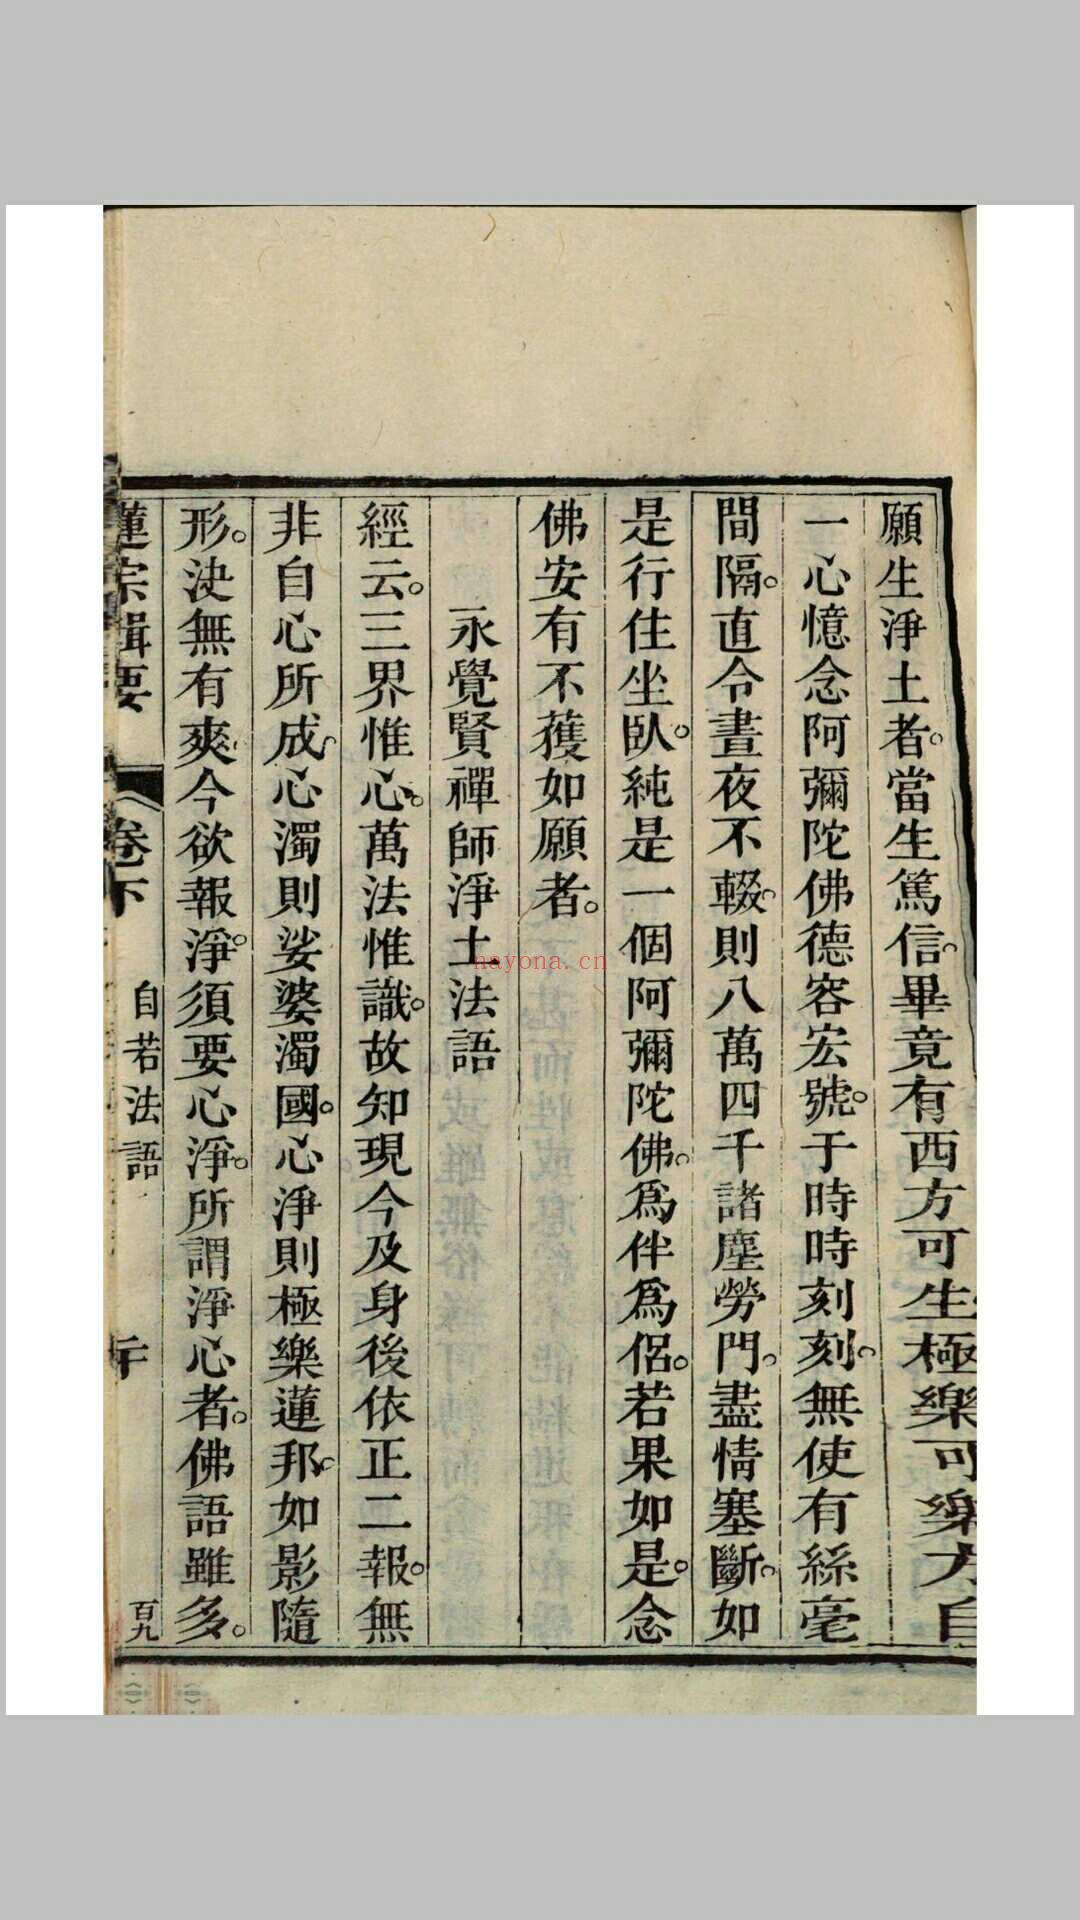 願生淨土者。當生篤信。畢竟有西方可生極樂可樂方自
一心憶念阿彌陀佛德容宏號。于時時刻刻。無使有絲毫
間隔。直令晝夜不輟。則八萬四千諸塵勞門。盡情塞斷。如
是行住坐臥。純是一個阿彌陀佛。爲伴爲侶。若果如是。念
佛安有不獲如願者。
永覺賢禪師淨土法語
經云。三界惟心。萬法惟識。故知現今及身後依正二報。無
非自心所成。心濁則娑婆濁國。心淨則極樂蓮邦。如影隨
形。決無有爽。今欲報淨。須要心淨。所謂淨心者。佛語雖多。
蓮宗輯要 卷下 自若法語 百九
nayona.cn